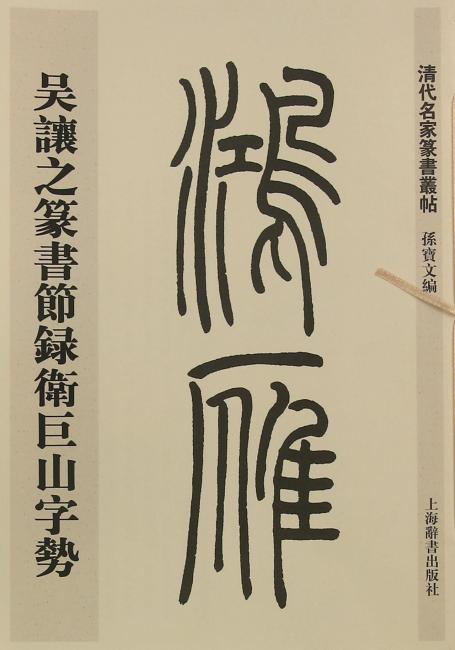 清代名家篆書叢帖
孫寶文編
上海辭書出版社
鴻雁
吴讓之篆書節録衛巨山字勢